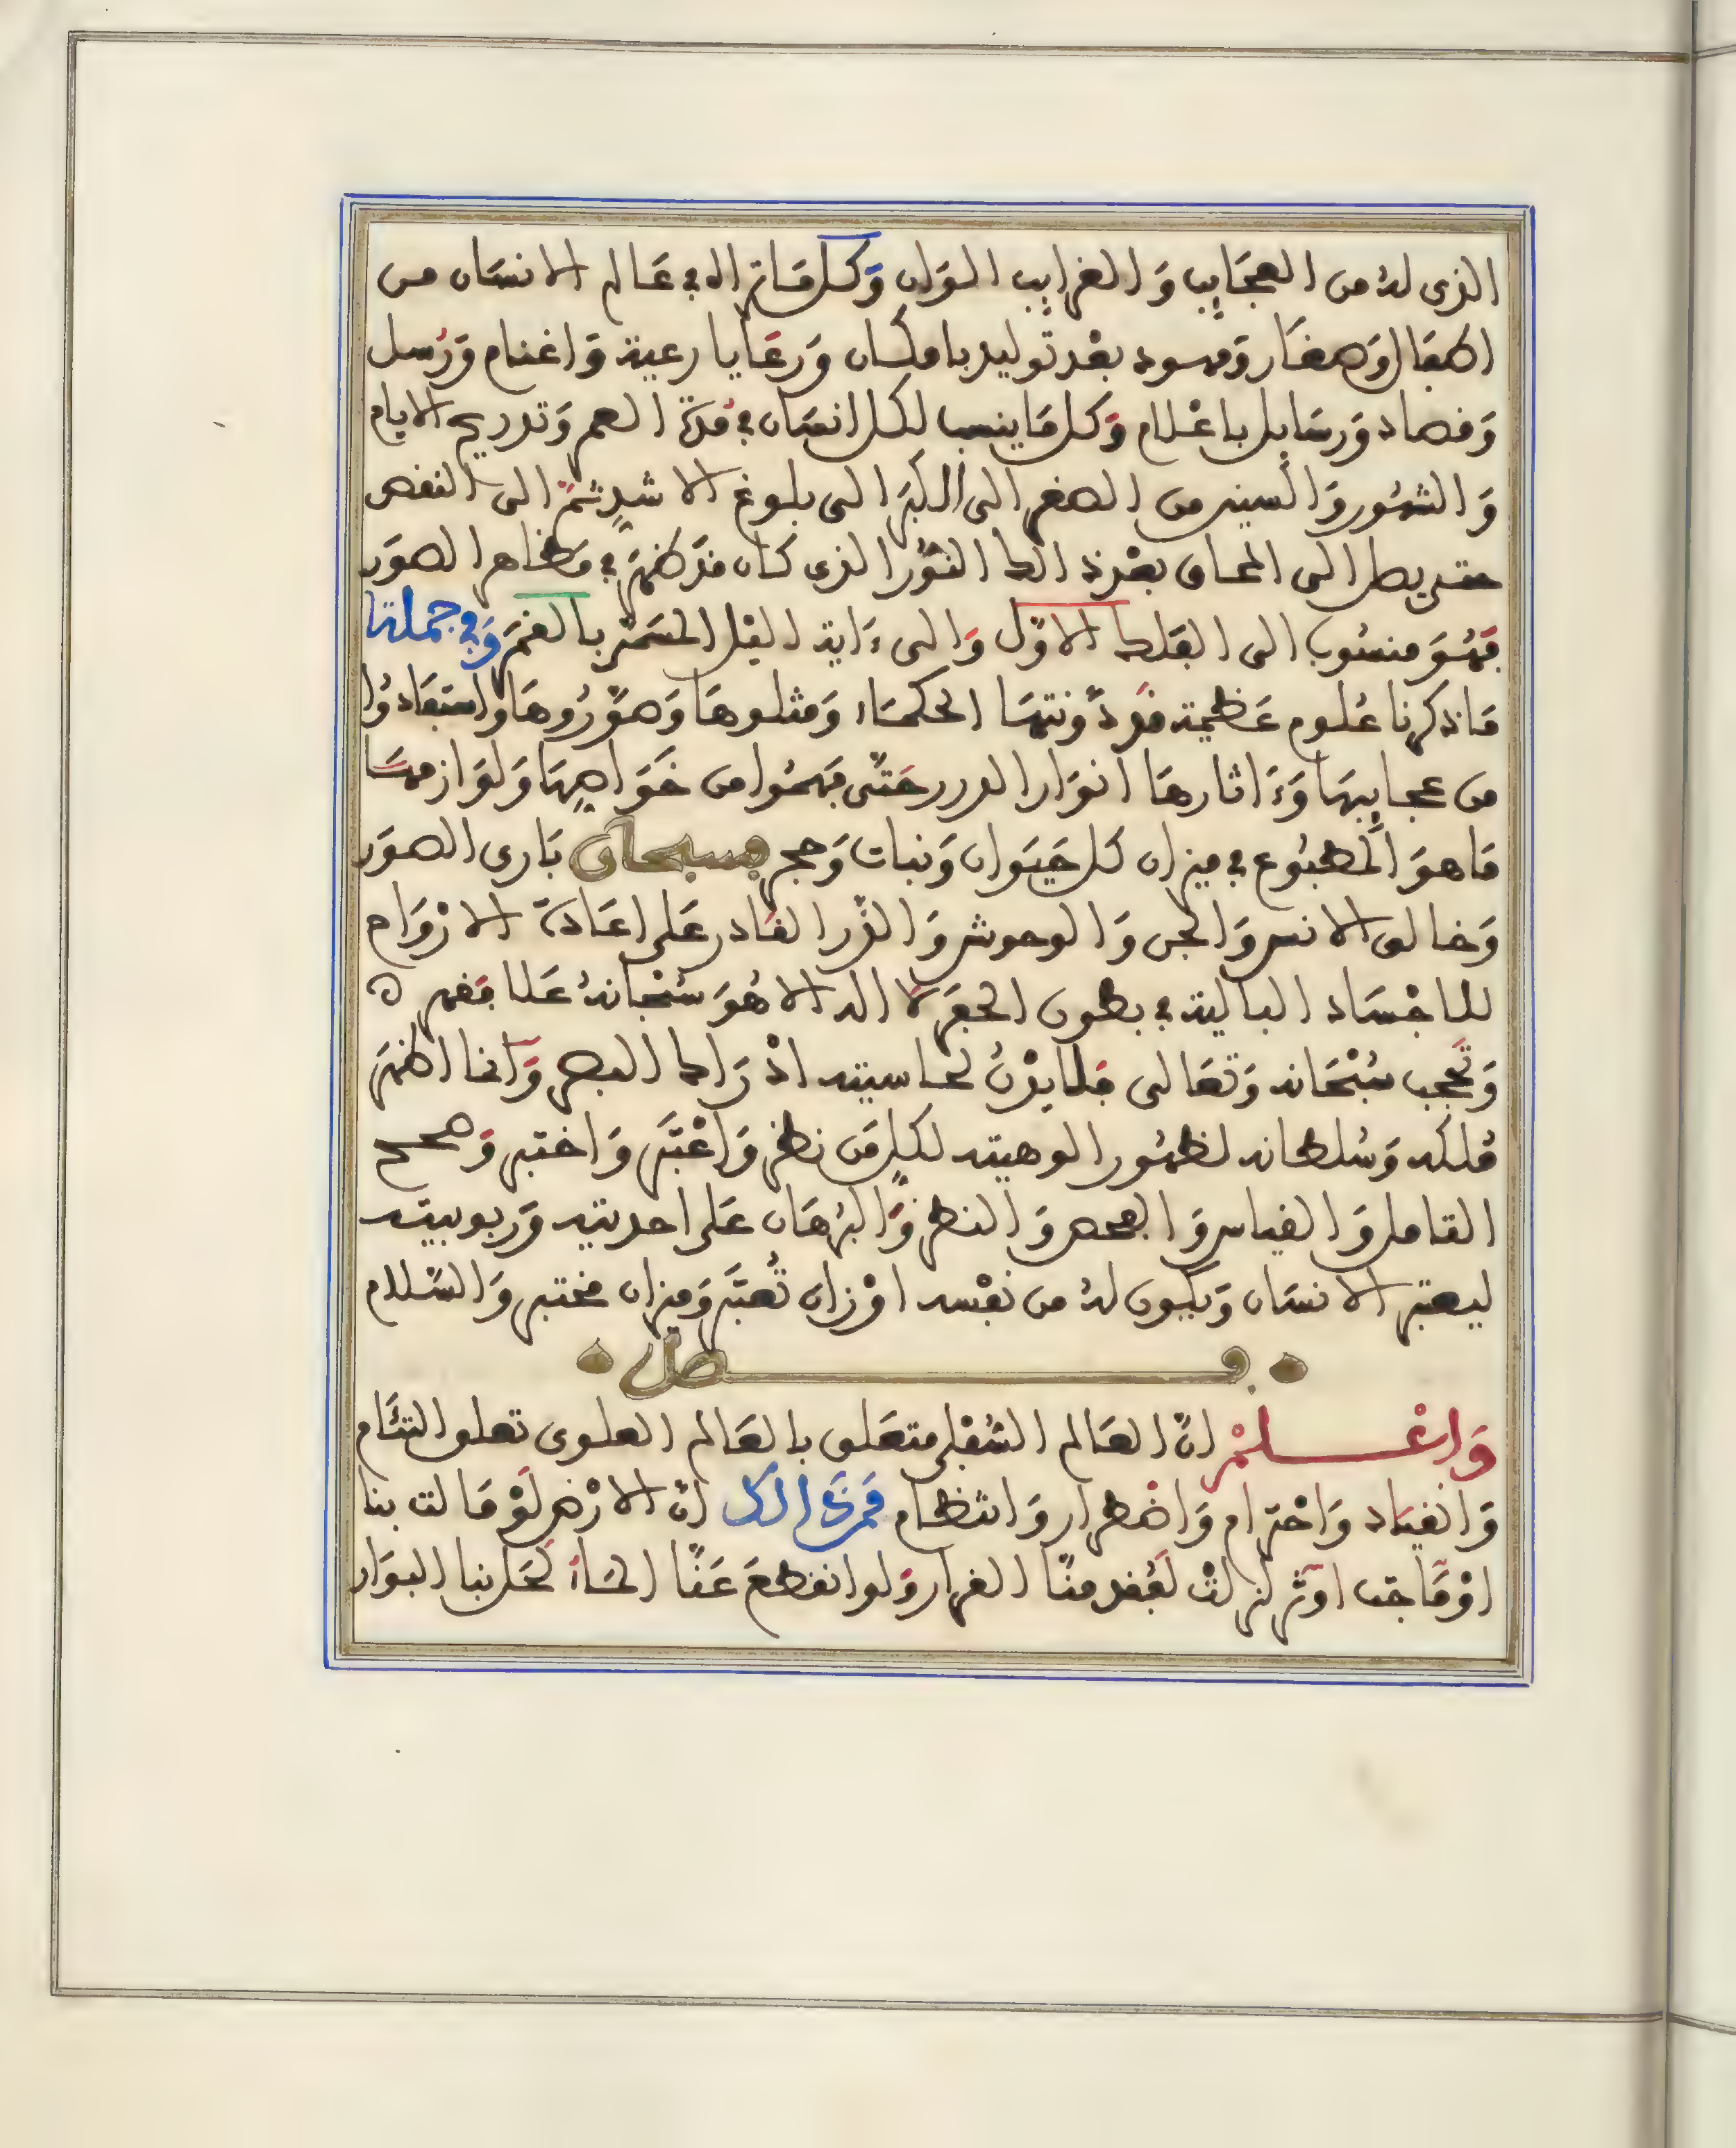 الذى لهُ من العجَايِب وَالغرايِب الوَان وَكل مَا تراه في عَالم الانسَان من
اطفال وَصغَار وَمهود بعْد توليد بامكان وَرعَايا رعية وَاغنام وَرُسل
وَفصاد وَرسَايل باعْلام وَكل مَا ينسب لكل انسَان في مُدة العمر وَتدريج الايام
وَالشهُور وَالسنين من الصغر الى الكبَر الى بلوغ الاشدِ ثمَّ الى النقص
حتى يصل الى المحاق بعْد ذالك النوُر الذى كان قدَ ظهَر في مَظاهر الصوَر
فهُوَ منسُوب الى الفَلك الاوَّل وَالى ءَاية اليْل المسَمّى بالقمَر وَفي جملة
مَا ذكرنا عُلوم عَظيمة قد دَوَّنتهَا الحكمَاء وَمثلوهَا وَصوَّرُوهَا وَاستفَادُوا
من عجايبهَا وَءَاثارهَا انوَار الدرر حَتَّى فهمُوا من خَوَاصِهَا وَلوَازمهَا
مَا هوَ المطبُوع في ميزان كل حَيَوان وَنبات وَحجر فسبحان بَارى الصوَر
وَخالق الانس وَالجن وَالوحوش وَالذّر القادر عَلى اعَادَة الارْوَاح
للاجْسَاد البالية في بطون الحفَر لا اله الا هُوَ سُبْحَانهُ عَلا فقهر
وَتَحجب سُبْحَانه وَتعَالى فلا يدْرَكُ لحاسيته اذْرَاك البصر وَانما اظهَر
مُلكه وَسُلطانه لظهُور الوهيته لكلِ مَن نظر وَاعْتَبَر وَاختبر وَصحح
التامل وَالقياس وَالفحص وَالنظر وَالبُرهَان عَلى احديته وَربوبيته
ليعتبر الانسَان وَيكون لهُ من نفْسه اوْزان تُعتَبَر وَميزان مختبر وَالسَّلام
فصل
وَاعْلمْ انَّ العَالم السُفْلى متعَلق بالعَالم العلوى تعلق التئَام
وَانقيَاد وَاحْترام وَاضْطرار وَانتظام فمرَد الكل انَّ الارْض لَوْ مَالت بنا
اوْ مَاجَت اوْ تزلزلتْ لفُقد منّا القرار وَلو انقطعَ عَنَّا المَاءُ لحَل بنا البوَار